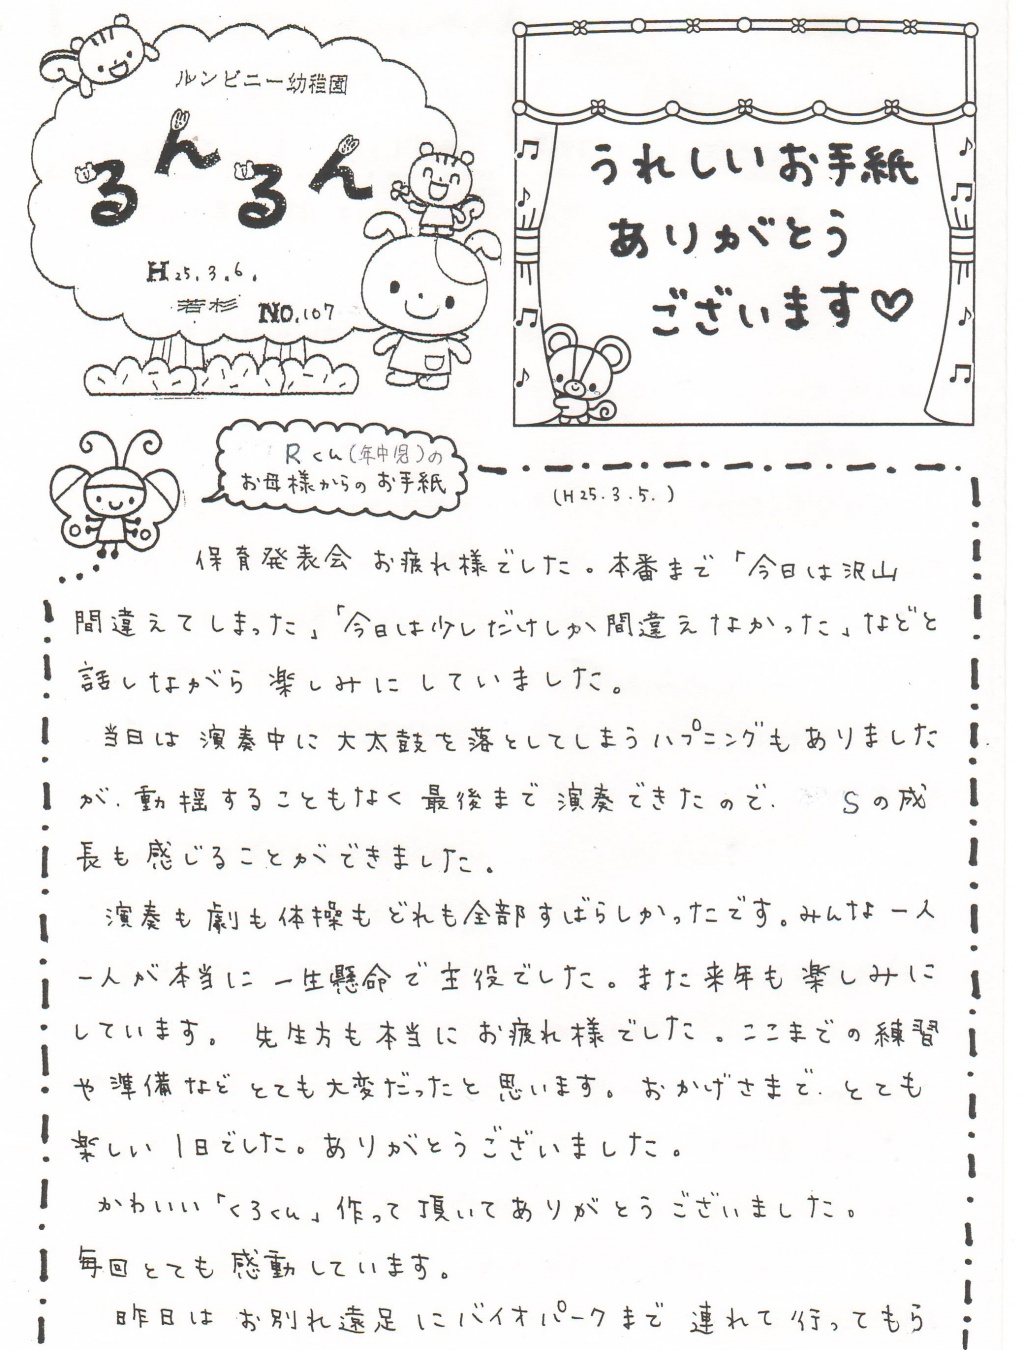 ルンビニー幼稚園
るんるん
H25.3.6.
若杉 NO.107
うれしいお手紙
ありがとう
ございます♡
Rくん(年中児)の
お母様からのお手紙
(H25.3.5.)
保育発表会 お疲れ様でした。本番まで「今日は沢山
間違えてしまった」「今日は少しだけしか間違えなかった」などと
話しながら 楽しみにしていました。
当日は 演奏中に 大太鼓を落としてしまうハプニングもありました
が、動揺することもなく 最後まで 演奏できたので、 Sの成
長も感じることができました。
演奏も劇も体操も どれも全部すばらしかったです。みんな一人
一人が本当に 一生懸命で主役でした。また来年も楽しみに
しています。 先生方も本当に お疲れ様でした。ここまでの練習
や準備など とても大変だったと 思います。 おかげさまで、とても
楽しい 1日でした。ありがとうございました。
かわいい「くろくん」作って頂いてありがとうございました。
毎回とても 感動しています。
昨日は お別れ遠足にバイオパークまで 連れて行ってもら